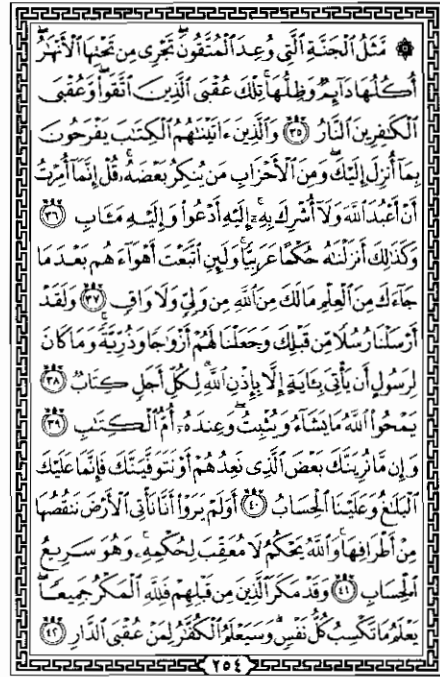 ۞ مَّثَلُ ٱلْجَنَّةِ ٱلَّتِى وُعِدَ ٱلْمُتَّقُونَ ۖ تَجْرِى مِن تَحْتِهَا ٱلْأَنْهَٰرُ ۖ
أُكُلُهَا دَآئِمٌ وَظِلُّهَا ۚ تِلْكَ عُقْبَى ٱلَّذِينَ ٱتَّقَوا۟ ۖ وَّعُقْبَى
ٱلْكَٰفِرِينَ ٱلنَّارُ ٣٥ وَٱلَّذِينَ ءَاتَيْنَٰهُمُ ٱلْكِتَٰبَ يَفْرَحُونَ
بِمَآ أُنزِلَ إِلَيْكَ ۖ وَمِنَ ٱلْأَحْزَابِ مَن يُنكِرُ بَعْضَهُۥ ۚ قُلْ إِنَّمَآ أُمِرْتُ
أَنْ أَعْبُدَ ٱللَّهَ وَلَآ أُشْرِكَ بِهِۦٓ ۚ إِلَيْهِ أَدْعُوا۟ وَإِلَيْهِ مَـَٔابِ ٣٦
وَكَذَٰلِكَ أَنزَلْنَٰهُ حُكْمًا عَرَبِيًّا ۚ وَلَئِنِ ٱتَّبَعْتَ أَهْوَآءَهُم بَعْدَ مَا
جَآءَكَ مِنَ ٱلْعِلْمِ مَا لَكَ مِنَ ٱللَّهِ مِن وَلِىٍّ وَلَا وَاقٍ ٣٧ وَلَقَدْ
أَرْسَلْنَا رُسُلًا مِّن قَبْلِكَ وَجَعَلْنَا لَهُمْ أَزْوَٰجًا وَذُرِّيَّةً ۚ وَمَا كَانَ
لِرَسُولٍ أَن يَأْتِىَ بِـَٔايَةٍ إِلَّا بِإِذْنِ ٱللَّهِ ۗ لِكُلِّ أَجَلٍ كِتَابٌ ٣٨
يَمْحُوا۟ ٱللَّهُ مَا يَشَآءُ وَيُثْبِتُ ۖ وَعِندَهُۥٓ أُمُّ ٱلْكِتَٰبِ ٣٩
وَإِن مَّا نُرِيَنَّكَ بَعْضَ ٱلَّذِى نَعِدُهُمْ أَوْ نَتَوَفَّيَنَّكَ فَإِنَّمَا عَلَيْكَ
ٱلْبَلَٰغُ وَعَلَيْنَا ٱلْحِسَابُ ٤٠ أَوَلَمْ يَرَوْا۟ أَنَّا نَأْتِى ٱلْأَرْضَ نَنقُصُهَا
مِنْ أَطْرَافِهَا ۚ وَٱللَّهُ يَحْكُمُ لَا مُعَقِّبَ لِحُكْمِهِۦ ۚ وَهُوَ سَرِيعُ
ٱلْحِسَابِ ٤١ وَقَدْ مَكَرَ ٱلَّذِينَ مِن قَبْلِهِمْ فَلِلَّهِ ٱلْمَكْرُ جَمِيعًا ۖ
يَعْلَمُ مَا تَكْسِبُ كُلُّ نَفْسٍ ۗ وَسَيَعْلَمُ ٱلْكُفَّٰرُ لِمَنْ عُقْبَى ٱلدَّارِ ٤٢
٢٥٤